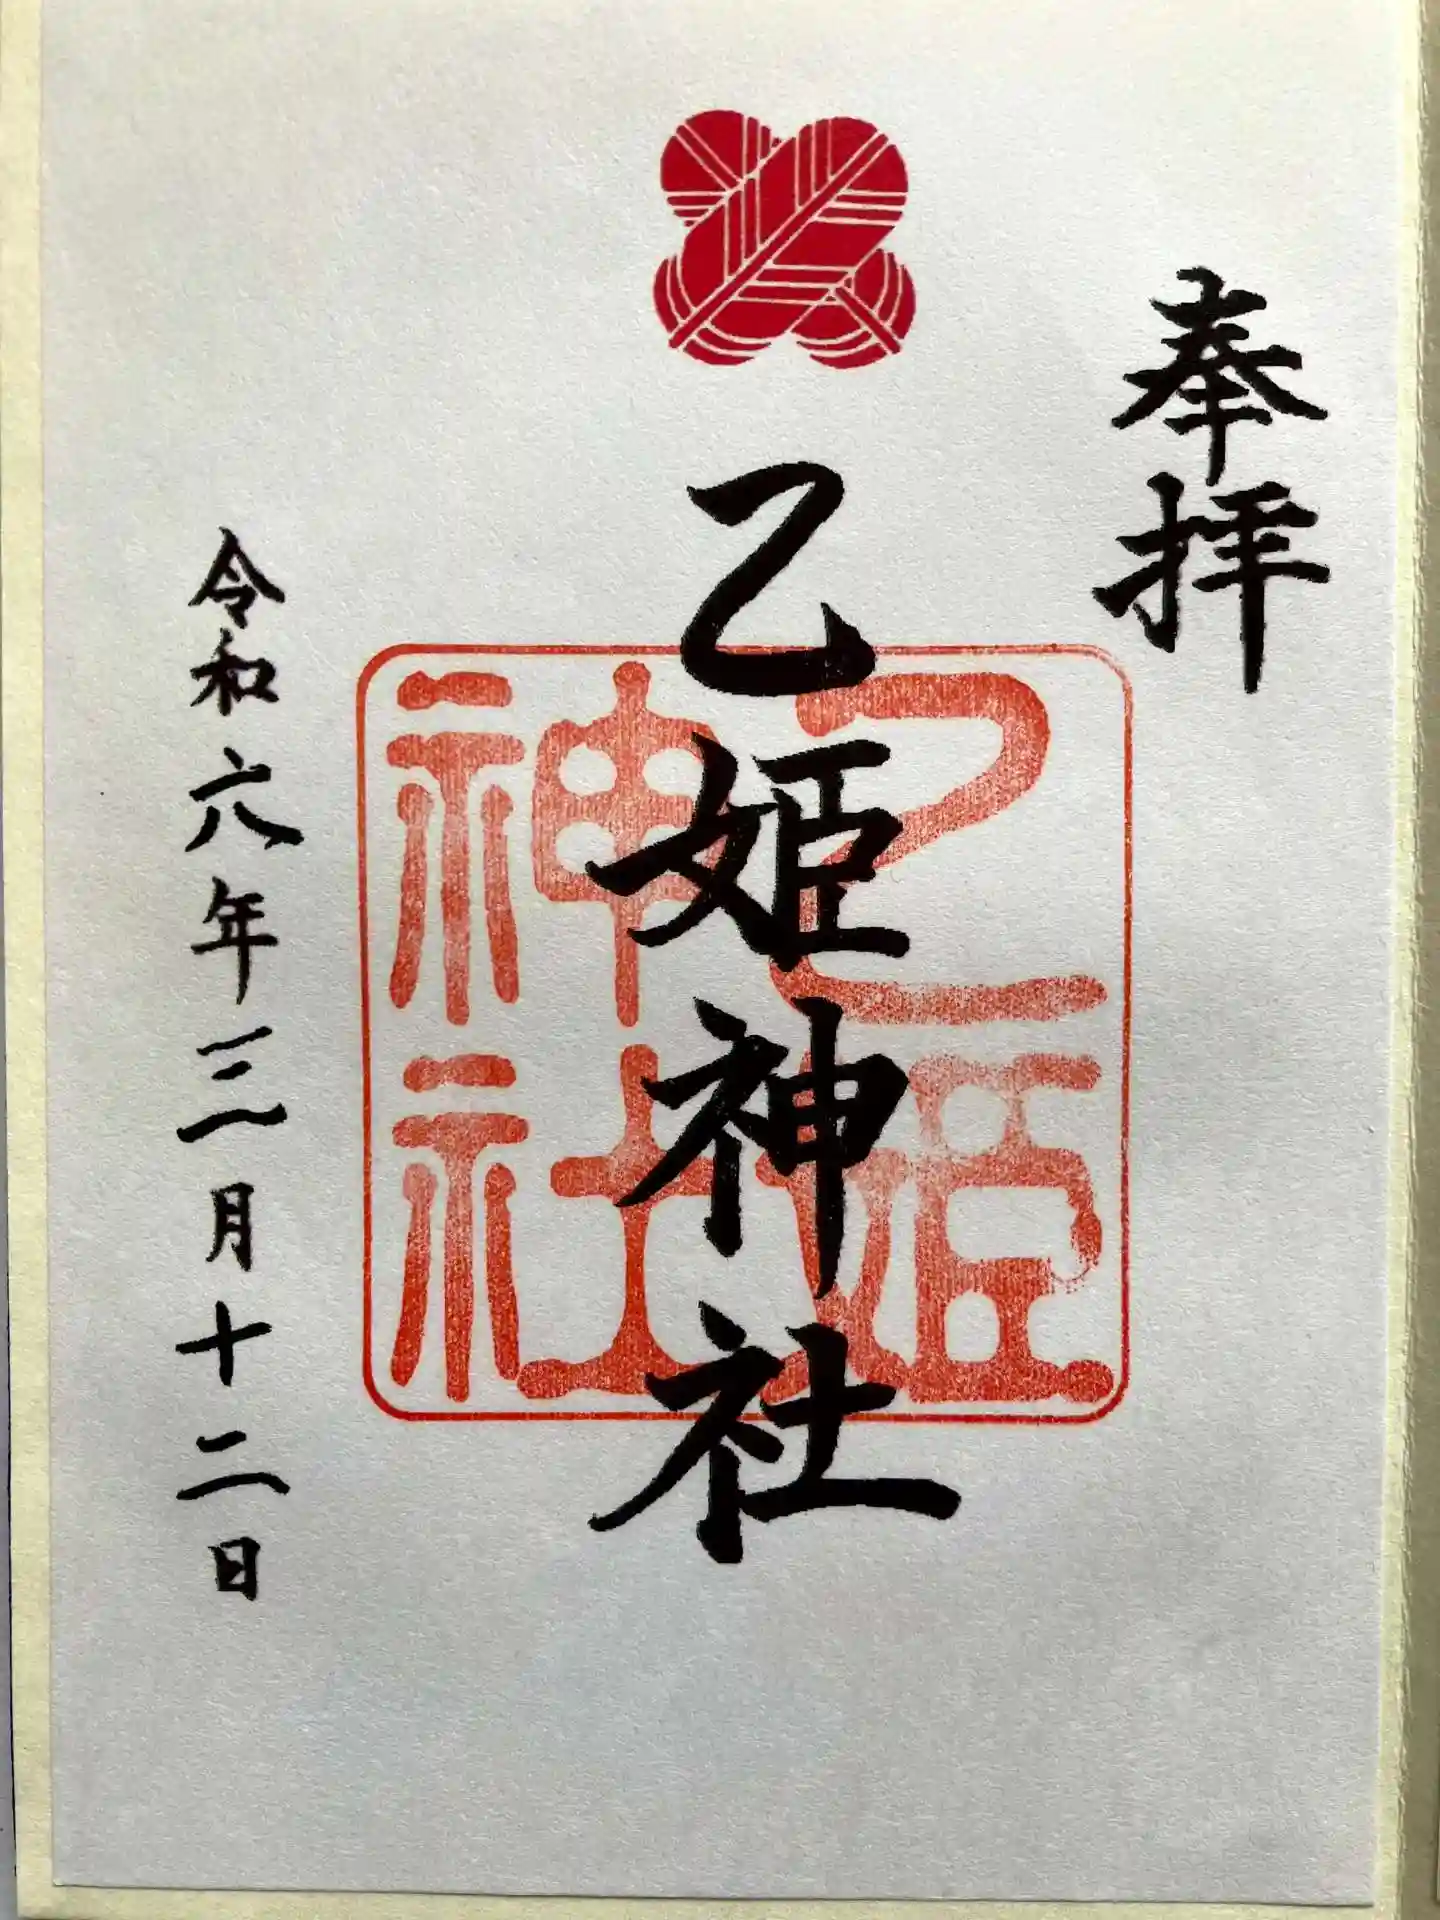 奉拝
乙姫神社
乙姫神社
令和六年三月十二日